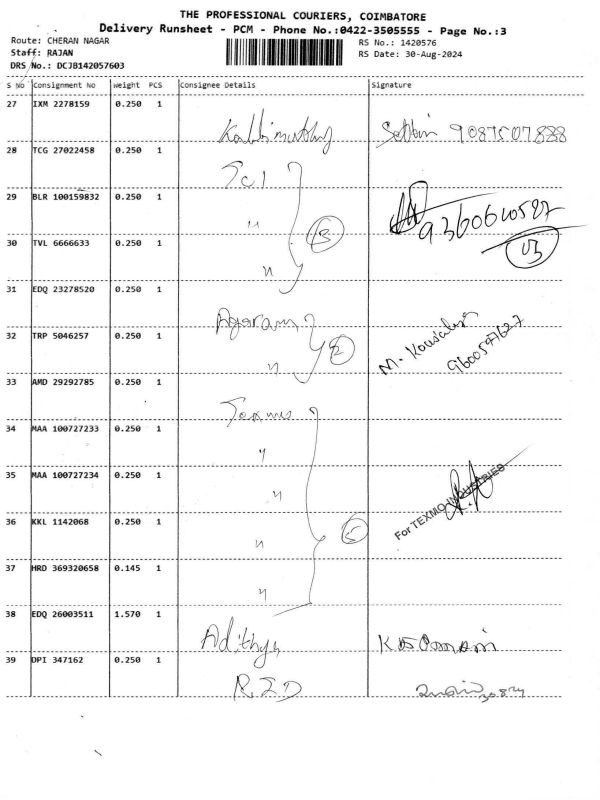 THE PROFESSIONAL COURIERS, COIMBATORE
Delivery Runsheet - PCM - Phone No.:0422-3505555 - Page No.:3
Route: CHERAN NAGAR
RS No.: 1420576
Staff: RAJAN
RS Date: 30-Aug-2024
DRS No.: DCJB142057603
S No Consignment No weight PCS Consignee Details Signature
27 IXM 2278159 0.250 1
9087507888
28 TCG 27022458 0.250 1
29 BLR 100159832 0.250 1 "
3
03
30 TVL 6666633 0.250 1 "
31 EDQ 23278520 0.250 1 Agaram
32 TRP 5046257 0.250 1 "
2
M. Kousalya
9600597627
33 AMD 29292785 0.250 1 Texmo
34 MAA 100727233 0.250 1 "
35 MAA 100727234 0.250 1 "
For TEXMO INDUSTRIES
36 KKL 1142068 0.250 1 "
5
37 HRD 369320658 0.145 1 "
38 EDQ 26003511 1.570 1 Adithya
39 DPI 347162 0.250 1